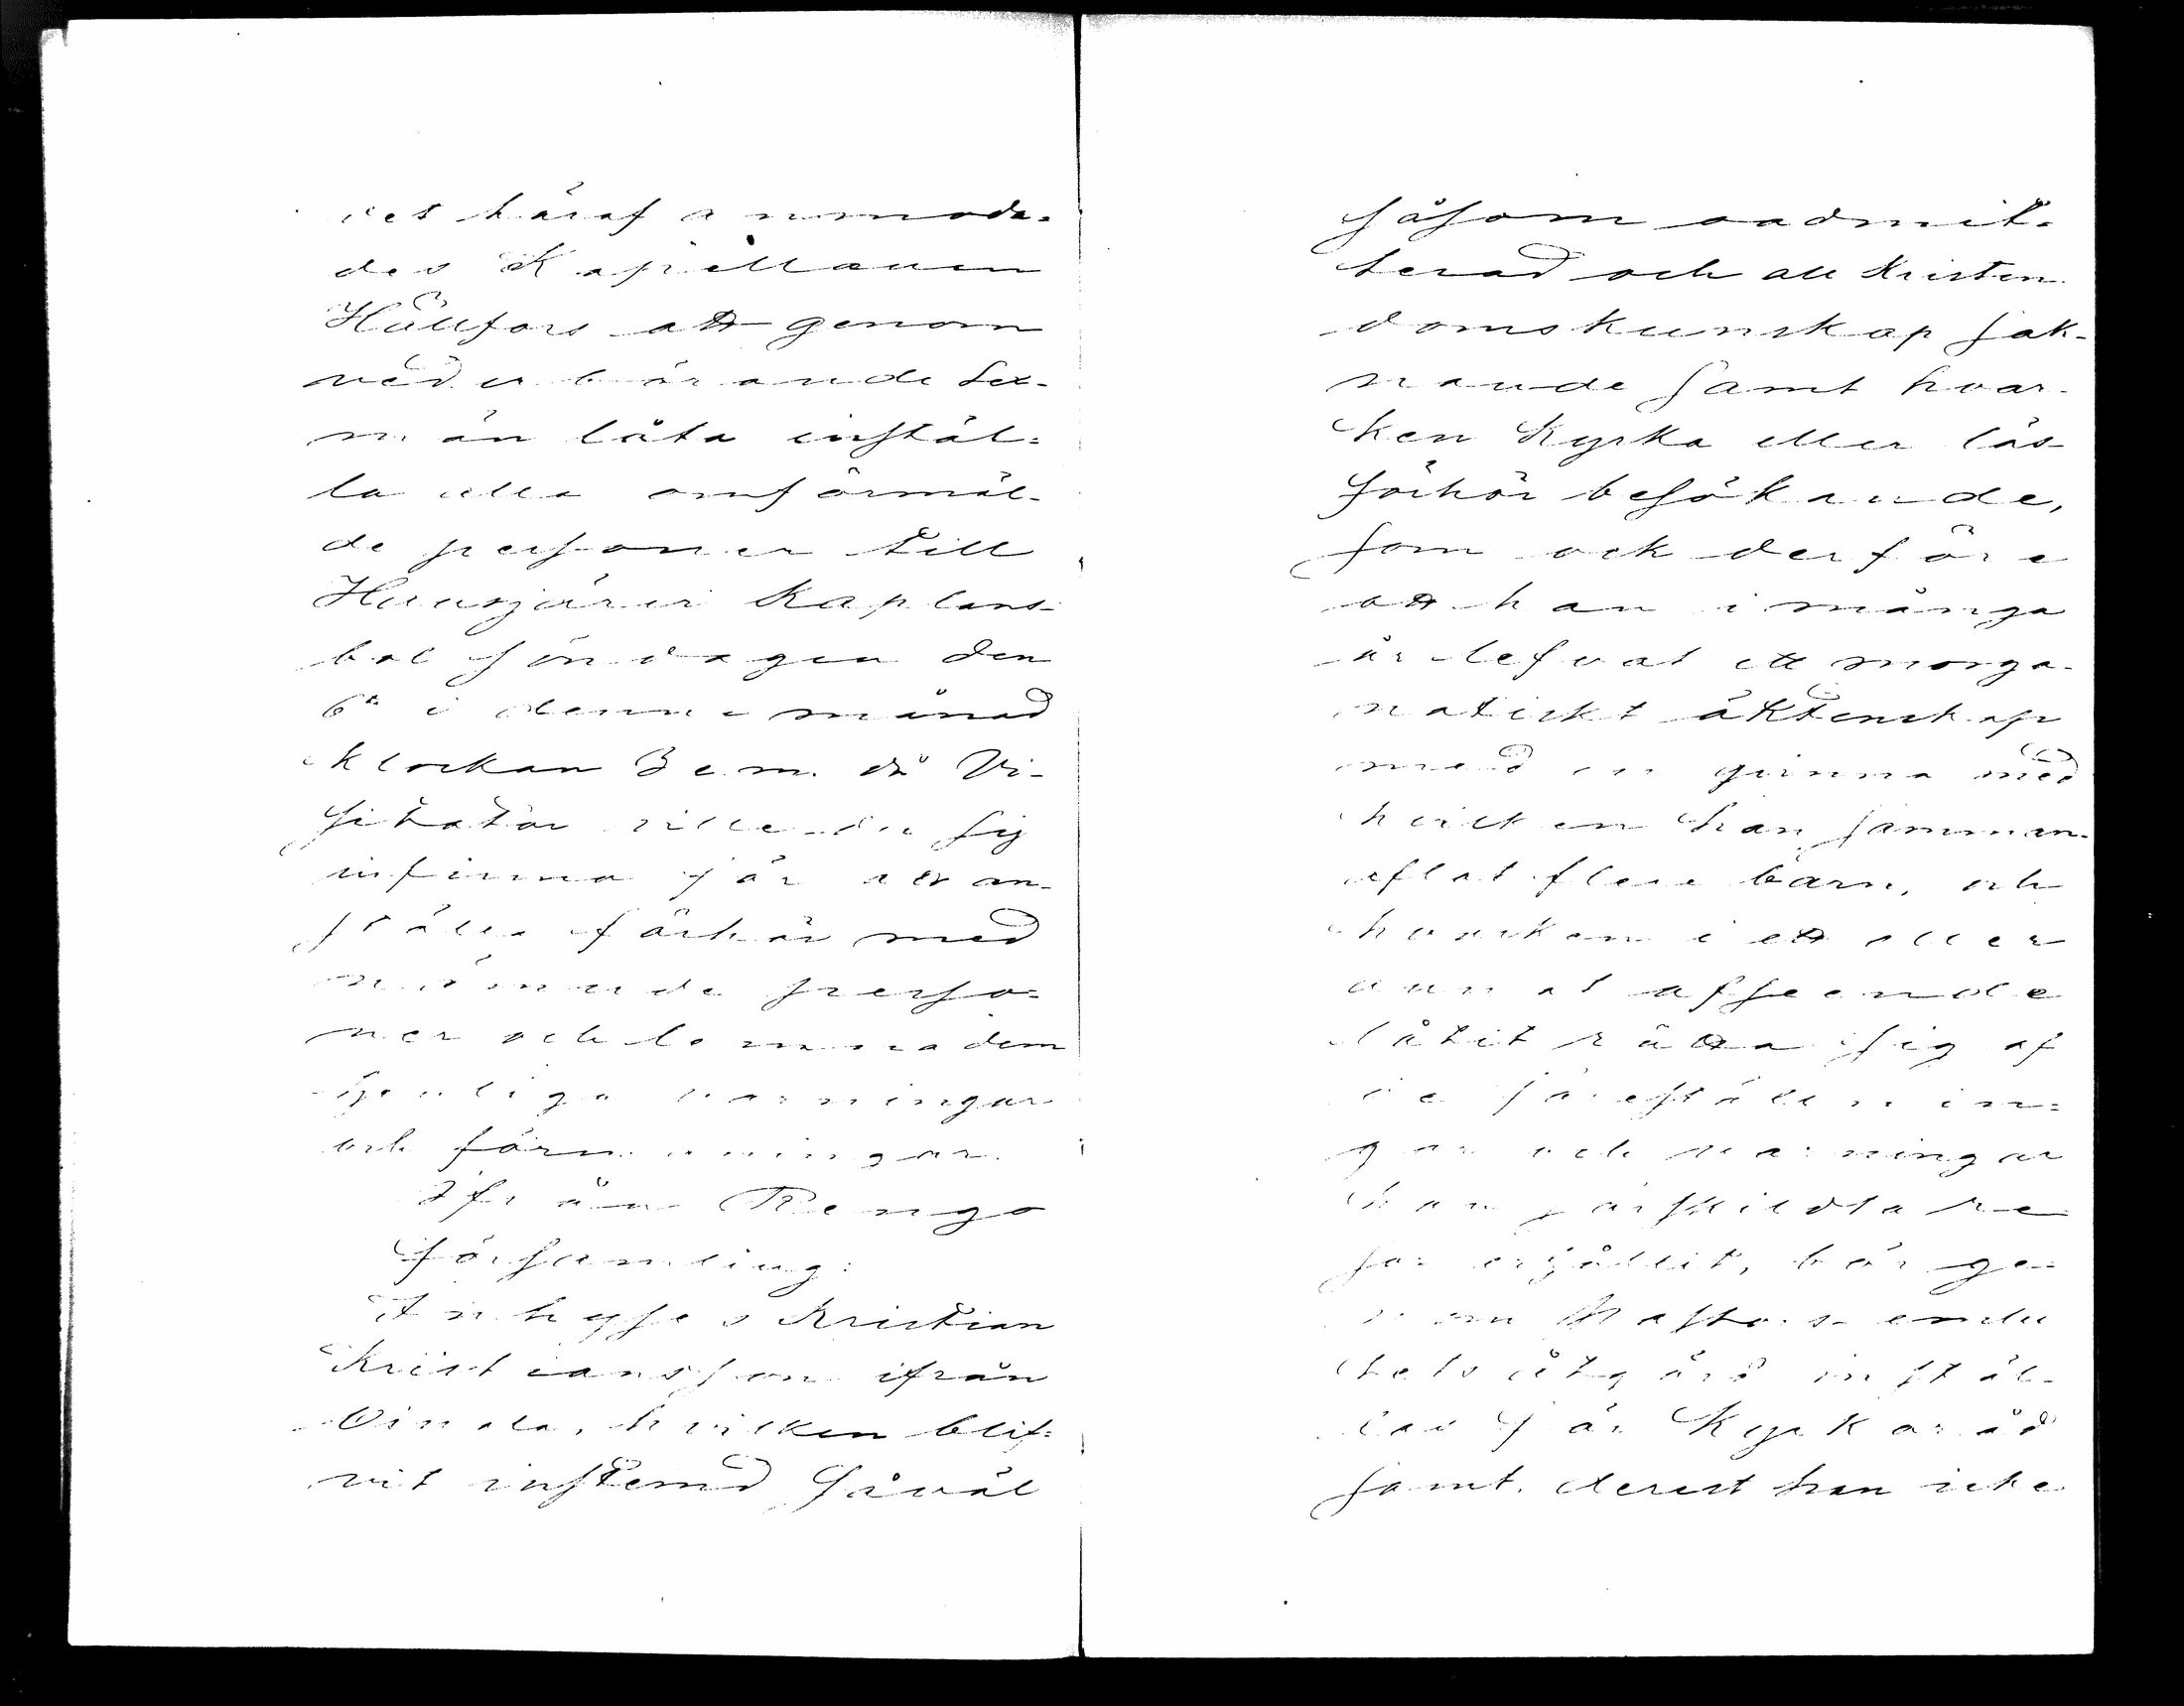 det häraf anmoda=
des Kapellanen
Hällfors att genom
vederbörande Sex-
män låta instäl=
la alla omförmäl-
de personer till
Hausjärvi Kaplans-
bol Söndagen den
6te i denna månad
klockan 3 e.m. då Vi-
sitator ville der sig
infinna för att an-
ställa förhör med
nämnde perso=
ner och lemna dem
tjenliga varningar
och förmaningar.
Ifrån Rengo
församling:
Inhyses Kristian
Kristiansson ifrån
Oinala, hvilken blif=
vit instemd såväl
såsom oadmit=
terad och all Kristen-
domskunskap sak-
nande samt hvar-
ken Kyrka eller läs-
förhör besökande,
som ock derföre
att han i många
år lefvat ett morga-
natiskt äktenskap
med en qvinna med
hvilken han samman-
aflat flere barn, och
hvarken i ett eller
annat afseende
låtit rätta sig af
de föreställnin=
gar och varningar
han särskildta re-
sor erhållit, bör ge-
nom Pastors-embe
tets åtgärd instäl-
las för Kyrkoråd
samt, derest han icke